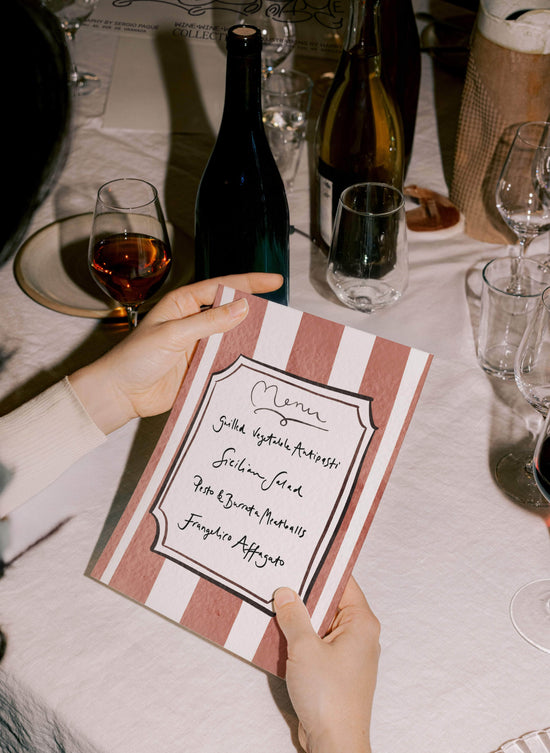 WINE•WINE•WINE
COLLECT
Menu
Guilled Vegetable Antipasti
Sicilian Salad
Pesto & Burrata Meatballs
Frangelico Affagato